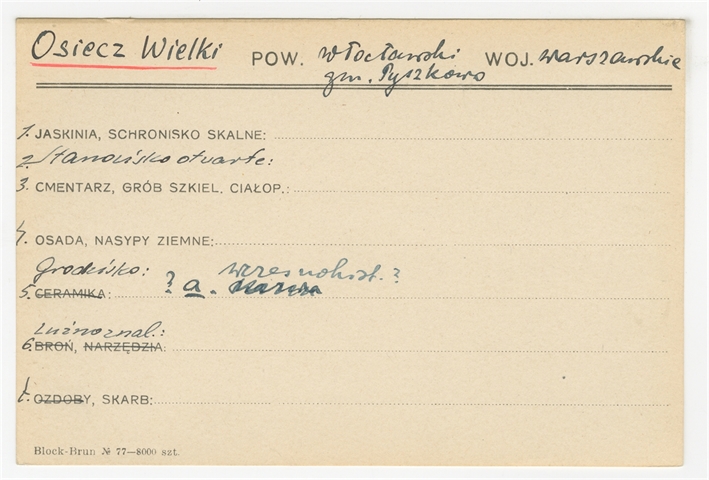 Osiecz Wielki POW. włocławski WOJ. warszawskie
gm. Pyszkowo
1. JASKINIA, SCHRONISKO SKALNE:
2. Stanowisko otwarte:
3. CMENTARZ, GRÓB SZKIEL. CIAŁOP.:
4. OSADA, NASYPY ZIEMNE:
Grodzisko: wczesnohist.?
5. CERAMIKA: ? a.
Luźno znal.:
6. BROŃ, NARZĘDZIA:
7. OZDOBY, SKARB:
Block-Brun № 77—8000 szt.